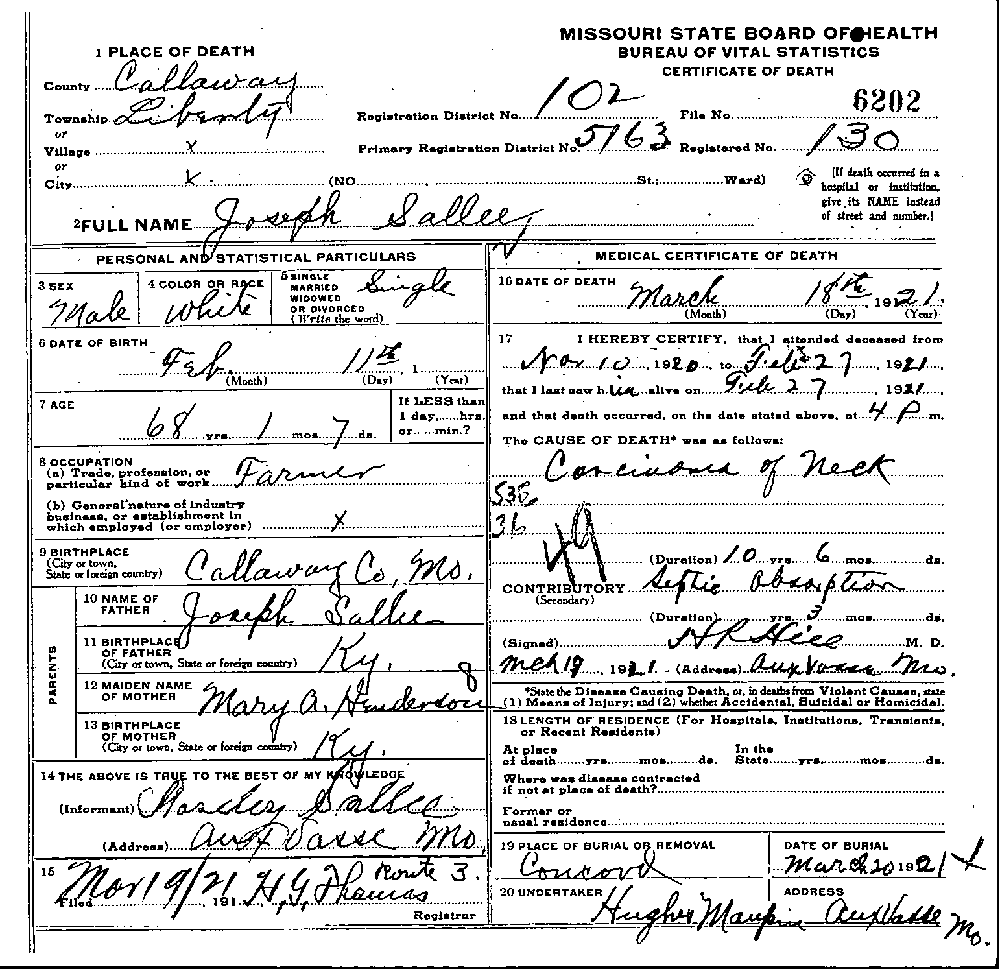 MISSOURI STATE BOARD OF HEALTH
BUREAU OF VITAL STATISTICS
CERTIFICATE OF DEATH
1 PLACE OF DEATH
County Callaway
Township Liberty
or
Village x
or
City x. (NO. St.; Ward)
Registration District No. 102
File No. 6202
Primary Registration District No. 5163
Registered No. 130
[If death occurred in a
hospital or institution,
give its NAME instead
of street and number.]
2 FULL NAME Joseph Sallee
PERSONAL AND STATISTICAL PARTICULARS
3 SEX
Male
4 COLOR OR RACE
White
5 SINGLE
MARRIED
WIDOWED
OR DIVORCED
(Write the word)
Single
6 DATE OF BIRTH
Feb. 11th, 1
(Month) (Day) (Year)
7 AGE
68 yrs. 1 mos. 7 ds.
If LESS than
1 day, hrs.
or min.?
8 OCCUPATION
(a) Trade, profession, or
particular kind of work Farmer
(b) General nature of industry
business, or establishment in
which employed (or employer) x
9 BIRTHPLACE
(City or town,
State or foreign country)
Callaway Co, Mo.
PARENTS
10 NAME OF
FATHER
Joseph Sallee
11 BIRTHPLACE
OF FATHER
(City or town, State or foreign country)
Ky.
12 MAIDEN NAME
OF MOTHER
Mary A. Henderson
13 BIRTHPLACE
OF MOTHER
(City or town, State or foreign country)
Ky.
14 THE ABOVE IS TRUE TO THE BEST OF MY KNOWLEDGE
(Informant) Sallee
(Address) Aux Vasse Mo,
Route 3.
15
Filed Mar 19/21 191 H, G, Thomas
Registrar
MEDICAL CERTIFICATE OF DEATH
16 DATE OF DEATH
March 18th 1921.
(Month) (Day) (Year)
17 I HEREBY CERTIFY, that I attended deceased from
Nov 10, 1920 to Feb 27, 1921
that I last saw him alive on Feb 27, 1921
and that death occurred, on the date stated above, at 4 P m.
The CAUSE OF DEATH* was as follows:
Carcinoma of Neck
36
49
(Duration) 10 yrs. 6 mos. ds.
CONTRIBUTORY Septic Absorption
(Secondary)
(Duration) yrs. 3 mos. ds.
(Signed) H R Hill M. D.
Mch 19 1921 (Address) Aux Vasse Mo.
*State the Disease Causing Death, or, in deaths from Violent Causes, state
(1) Means of Injury; and (2) whether Accidental, Suicidal or Homicidal.
18 LENGTH OF RESIDENCE (For Hospitals, Institutions, Transients,
or Recent Residents)
At place
of death yrs. mos. ds.
In the
State yrs. mos. ds.
Where was disease contracted
if not at place of death?
Former or
usual residence
19 PLACE OF BURIAL OR REMOVAL
Concord
DATE OF BURIAL
March 20 1921
20 UNDERTAKER
Hughes Maupin
ADDRESS
Aux Vasse Mo.